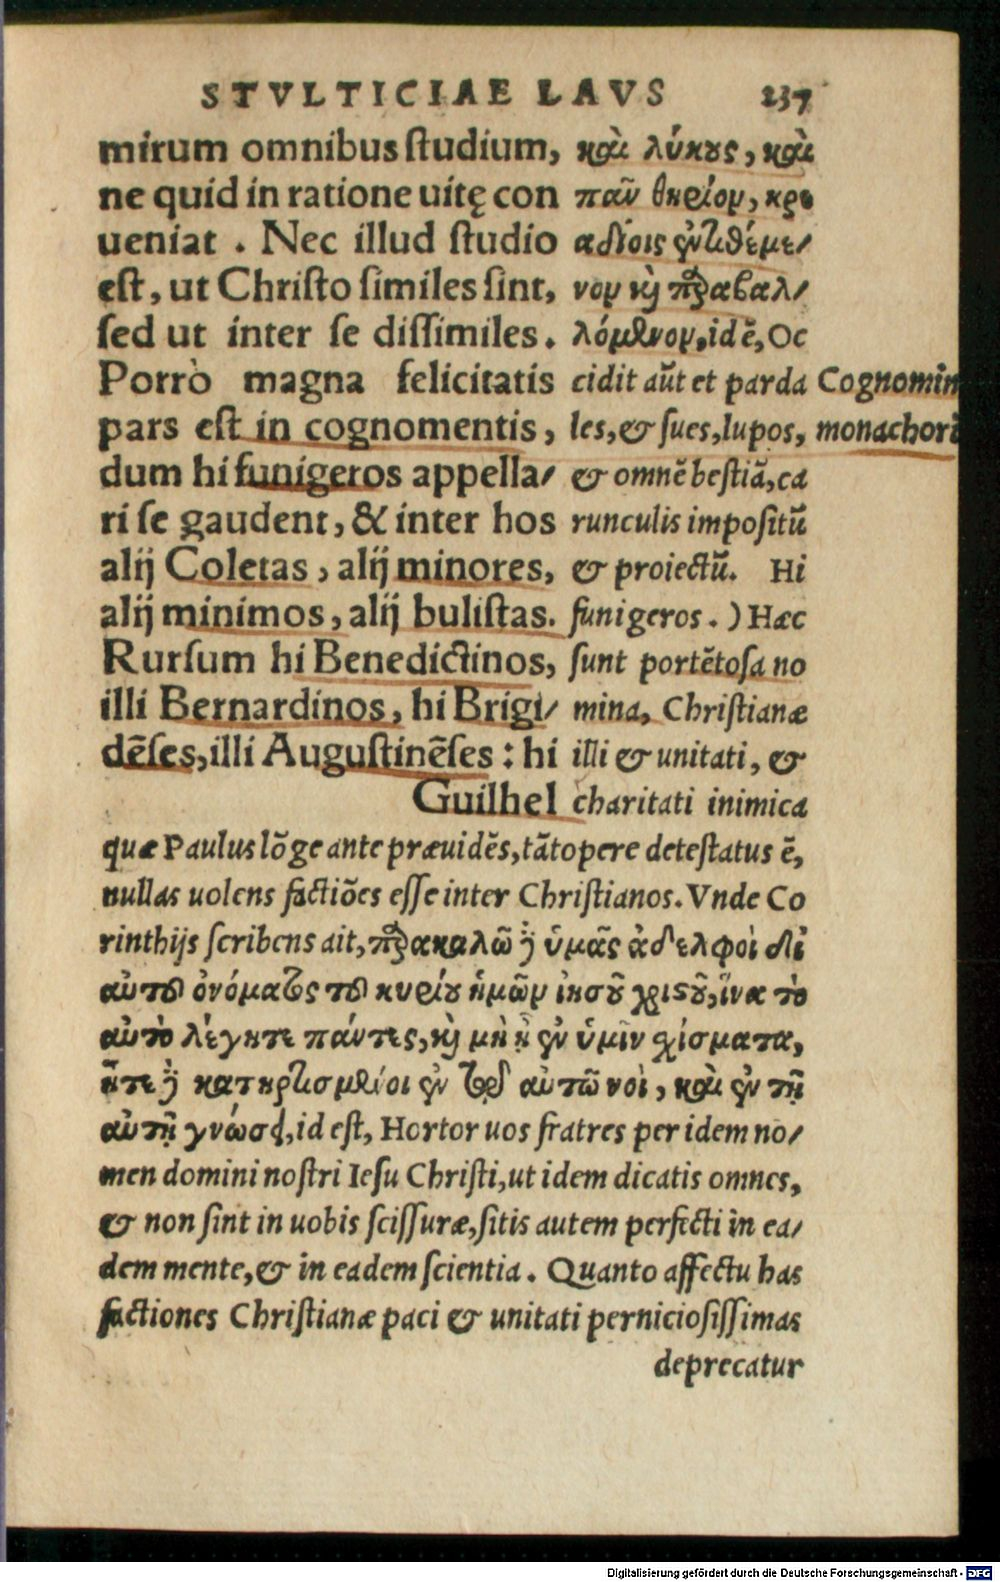 STVLTICIAE LAVS 237
mirum omnibus ſtudium,
ne quid in ratione uitę con
ueniat . Nec illud ſtudio
eſt, ut Chriſto ſimiles ſint,
sed ut inter ſe diſſimiles.
Porrò magna felicitatis
pars eſt in cognomentis,
dum hi funigeros appella/
ri ſe gaudent, & inter hos
alij Coletas, alij minores,
alij minimos, alij buliſtas.
Rurſum hi Benedictinos,
illi Bernardinos, hi Brigi/
dēſes, illi Auguſtinēſes : hi
Guilhel
καὶ λύκους, καὶ
πᾶν θηρίον, κρε
αδίοις ἐντιθέμε/
νον καὶ παραβαλ/
λόμενον, id ē, Oc
cidit aūt et parda
les, & ſues, lupos,
& omnē beſtiā, ca
runculis impoſitū
& proiectū. Hi
funigeros . ) Hæc
ſunt portētoſa no
mina, Chriſtianæ
illi & unitati, &
charitati inimica
Cognomin
monachorū
quæ Paulus lōge ante præuidēs, tātopere deteſtatus ē,
nullas uolens factiōes eſſe inter Chriſtianos. Vnde Co
rinthijs ſcribens ait, παρακαλῶ δὲ ὑμᾶς ἀδελφοὶ διὰ
αὐτοῦ ὀνόματος τοῦ κυρίου ἡμῶν ἰησοῦ χριστοῦ, ἵνα τὸ
αὐτὸ λέγητε πάντες, καὶ μὴ ᾖ ἐν ὑμῖν χίσματα,
ἦτε δὲ κατηρτισμένοι ἐν τῷ αὐτῶ νοὶ, καὶ ἐν τῇ
αὐτῇ γνώσει, id eſt, Hortor uos fratres per idem no/
men domini noſtri Ieſu Chriſti, ut idem dicatis omnes,
& non ſint in uobis ſciſſuræ, ſitis autem perfecti in ea/
dem mente, & in eadem ſcientia . Quanto affectu has
factiones Chriſtianæ paci & unitati pernicioſiſſimas
deprecatur
Digitalisierung gefördert durch die Deutsche Forschungsgemeinschaft - DFG